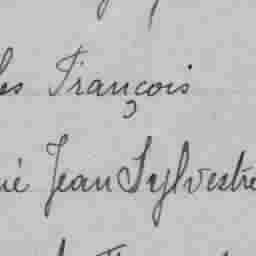 les François
né Jean Sylvestre